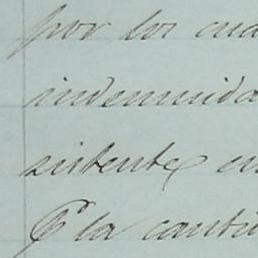 por los cua
indemnida
sistente en
la canti